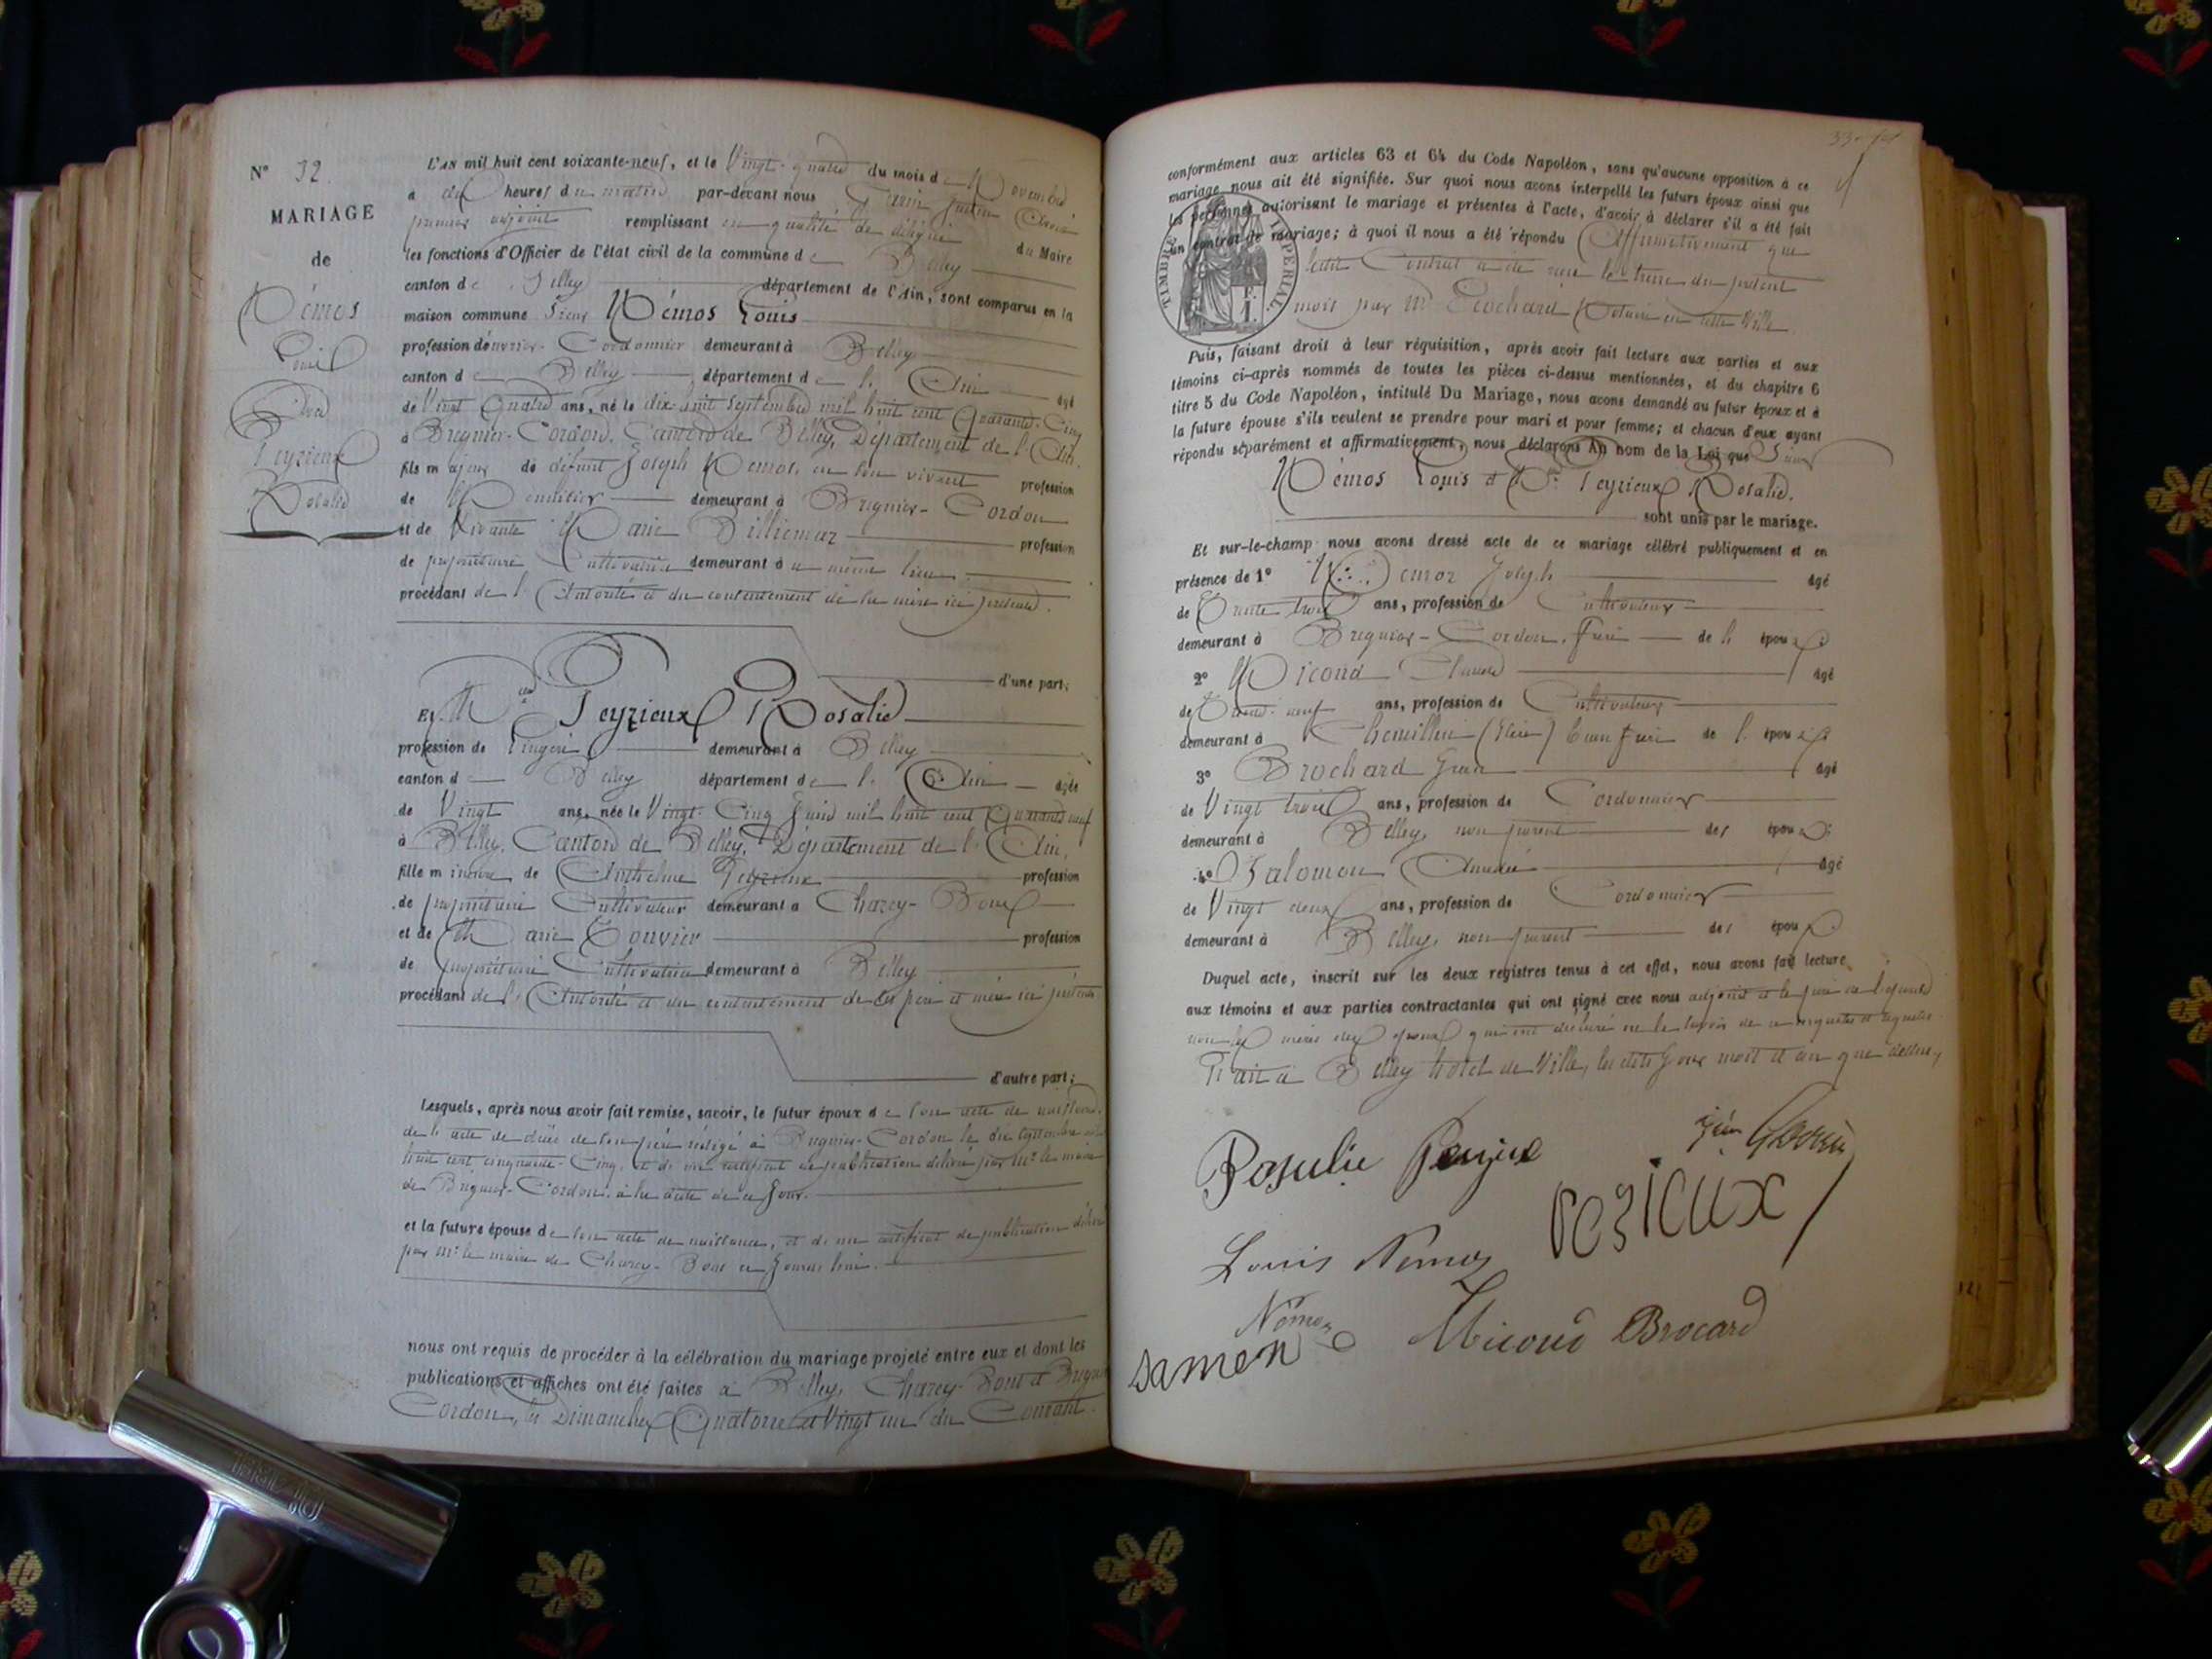 N° 32.
MARIAGE
de
Némos
Louis
Avec
Peyrieux
Rosalie
L'AN mil huit cent soixante-neuf, et le Vingt-quatre du mois de Novembre
à dix heures du matin par-devant nous
premier adjoint remplissant en qualité de délégué du Maire
les fonctions d'Officier de l'état civil de la commune de Belley
canton de Belley département de l'Ain, sont comparus en la
maison commune Sieur Némos Louis
profession d'ouvrier-Cordonnier demeurant à Belley
canton de Belley département de l'Ain âgé
de Vingt Quatre ans, né le dix-huit Septembre mil huit cent Quarante-Cinq
à Bregnier-Cordon, Canton de Belley, Département de l'Ain.
fils majeur de défunt Joseph Némos, en son vivant profession
de demeurant à Bregnier-Cordon
et de Vivante Marie Billiemaz profession
de propriétaire Cultivatrice demeurant au même lieu.
procédant de l'Autorité et du consentement de sa mère ici présente.
d'une part;
Et Melle Peyrieux Rosalie
profession de Lingère demeurant à Belley
canton de Belley département de l'Ain âgée
de Vingt ans, née le Vingt-Cinq Juin mil huit cent Quarante neuf
à Belley, Canton de Belley, Département de l'Ain,
fille mineure de Anthelme Peyrieux profession
de propriétaire Cultivateur demeurant à Charey-Bons
et de Marie Convier profession
de propriétaire Cultivatrice demeurant à Belley
procédant de l'Autorité et du consentement de ses père et mère ici présents
d'autre part;
Lesquels, après nous avoir fait remise, savoir, le futur époux de son acte de naissance,
de l'acte de décès de son père rédigé à Bregnier-Cordon le dix Septembre mil
huit cent cinquante-Cinq, et de un certificat de publication délivré par Mr le maire
de Bregnier-Cordon, à la date de ce Jour.
et la future épouse de son acte de naissance, et de un certificat de publication délivré
par Mr le maire de Charey-Bons ce
nous ont requis de procéder à la célébration du mariage projeté entre eux et dont les
publications et affiches ont été faites à Belley, Charey-Bons et Bregnier
Cordon, les Dimanches Quatorze et Vingt un du Courant.
conformément aux articles 63 et 64 du Code Napoléon, sans qu'aucune opposition à ce
mariage nous ait été signifiée. Sur quoi nous avons interpellé les futurs époux ainsi que
les personnes autorisant le mariage et présentes à l'acte, d'avoir à déclarer s'il a été fait
un contrat de mariage; à quoi il nous a été répondu Affirmativement que
ledit Contrat a été reçu le treize du présent
mois par Me Brochard Notaire en cette Ville.
TIMBRE IMPERIAL
Puis, faisant droit à leur réquisition, après avoir fait lecture aux parties et aux
témoins ci-après nommés de toutes les pièces ci-dessus mentionnées, et du chapitre 6
titre 5 du Code Napoléon, intitulé Du Mariage, nous avons demandé au futur époux et à
la future épouse s'ils veulent se prendre pour mari et pour femme; et chacun d'eux ayant
répondu séparément et affirmativement, nous déclarons Au nom de la Loi que Sieur
Némos Louis et Melle Peyrieux Rosalie.
sont unis par le mariage.
Et sur-le-champ nous avons dressé acte de ce mariage célébré publiquement et en
présence de 1° Némoz Joseph âgé
de Trente trois ans, profession de Cultivateur
demeurant à Bregnier-Cordon, Frère de l'époux
2° Micoud Claude âgé
de neuf ans, profession de Cultivateur
demeurant à Chemillieu (Isère) beau frère de l'époux
3° Brochard Jean âgé
de Vingt trois ans, profession de Cordonnier
demeurant à Belley, non parent des époux
4° Salomon Amédée âgé
de Vingt deux ans, profession de Cordonnier
demeurant à Belley, non parent des époux
Duquel acte, inscrit sur les deux registres tenus à cet effet, nous avons fait lecture
aux témoins et aux parties contractantes qui ont signé avec nous adjoint et le père de l'épouse
non les mères des époux qui ont déclaré ne le savoir de ce enquises et requises.
Fait à Belley hôtel de Ville, les dits Jour mois et an que dessus,
Rosalie Peyrieux
Louis Némoz peзieux
Némoz
Micoud Brocard